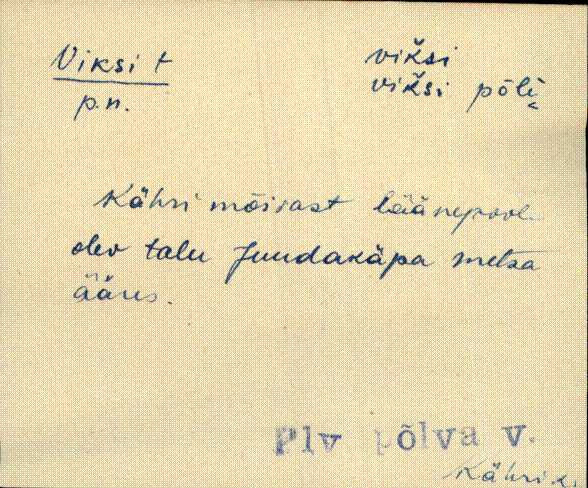 Viksi t
p.n.
vikši
vikši põli̯
Kähri mõisast läänepool
olev talu Juudakäpa metsa
ääres.
Plv põlva v.
Kähri k.